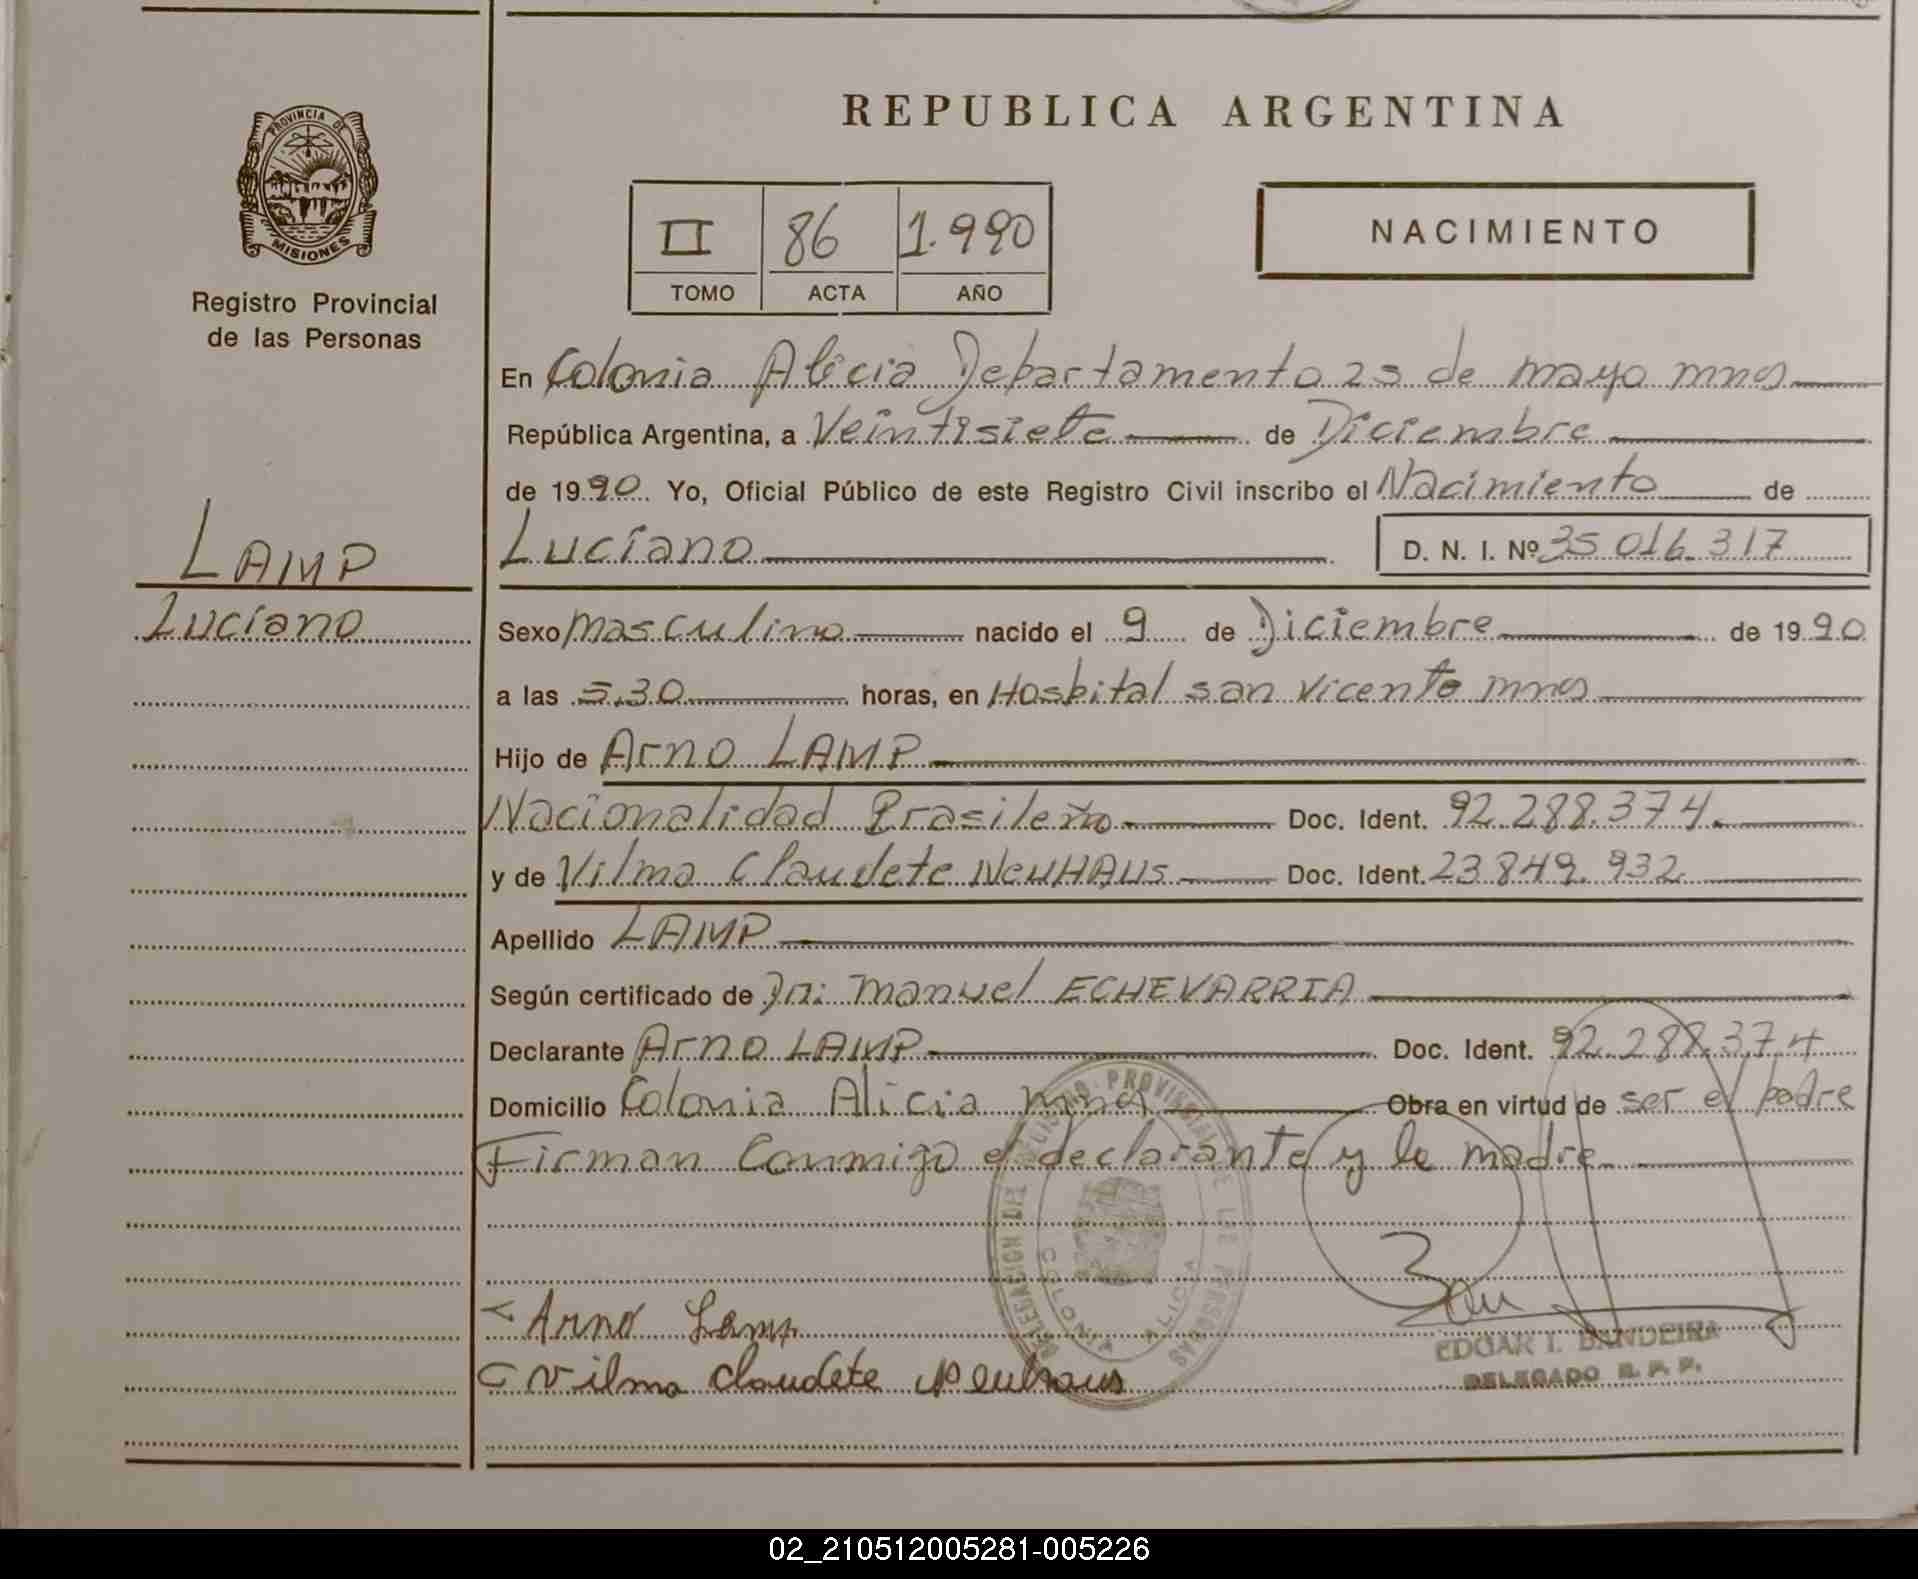 REPUBLICA ARGENTINA
PROVINCIA DE MISIONES
Registro Provincial
de las Personas
II 86 1.990
TOMO ACTA AÑO
NACIMIENTO
En Colonia Alicia Departamento 25 de mayo mnes
República Argentina, a Veintisiete de Diciembre
de 1990. Yo, Oficial Público de este Registro Civil inscribo el Nacimiento de
Luciano D. N. I. Nº 35 016.317
LAMP
Luciano
Sexo masculino nacido el 9 de Diciembre de 1990
a las 5.30 horas, en Hospital san vicente mnes
Hijo de Arno LAMP
Nacionalidad Brasileño Doc. Ident. 92.288.374.
y de Vilma Claudete NeuHAUs Doc. Ident. 23.849.932
Apellido LAMP
Según certificado de Dr: Manuel ECHEVARRIA
Declarante Arno LAMP Doc. Ident. 92.288.374
Domicilio Colonia Alicia mnes Obra en virtud de ser el padre
Firman Conmigo el declarante y la madre
DELEGACION DEL REGISTRO PROVINCIAL DE LAS PERSONAS
COLONIA ALICIA
Arno Lamp
Vilma Claudete Neuhaus
EDGAR I. BANDEIRA
DELEGADO R. P. P.
02_210512005281-005226